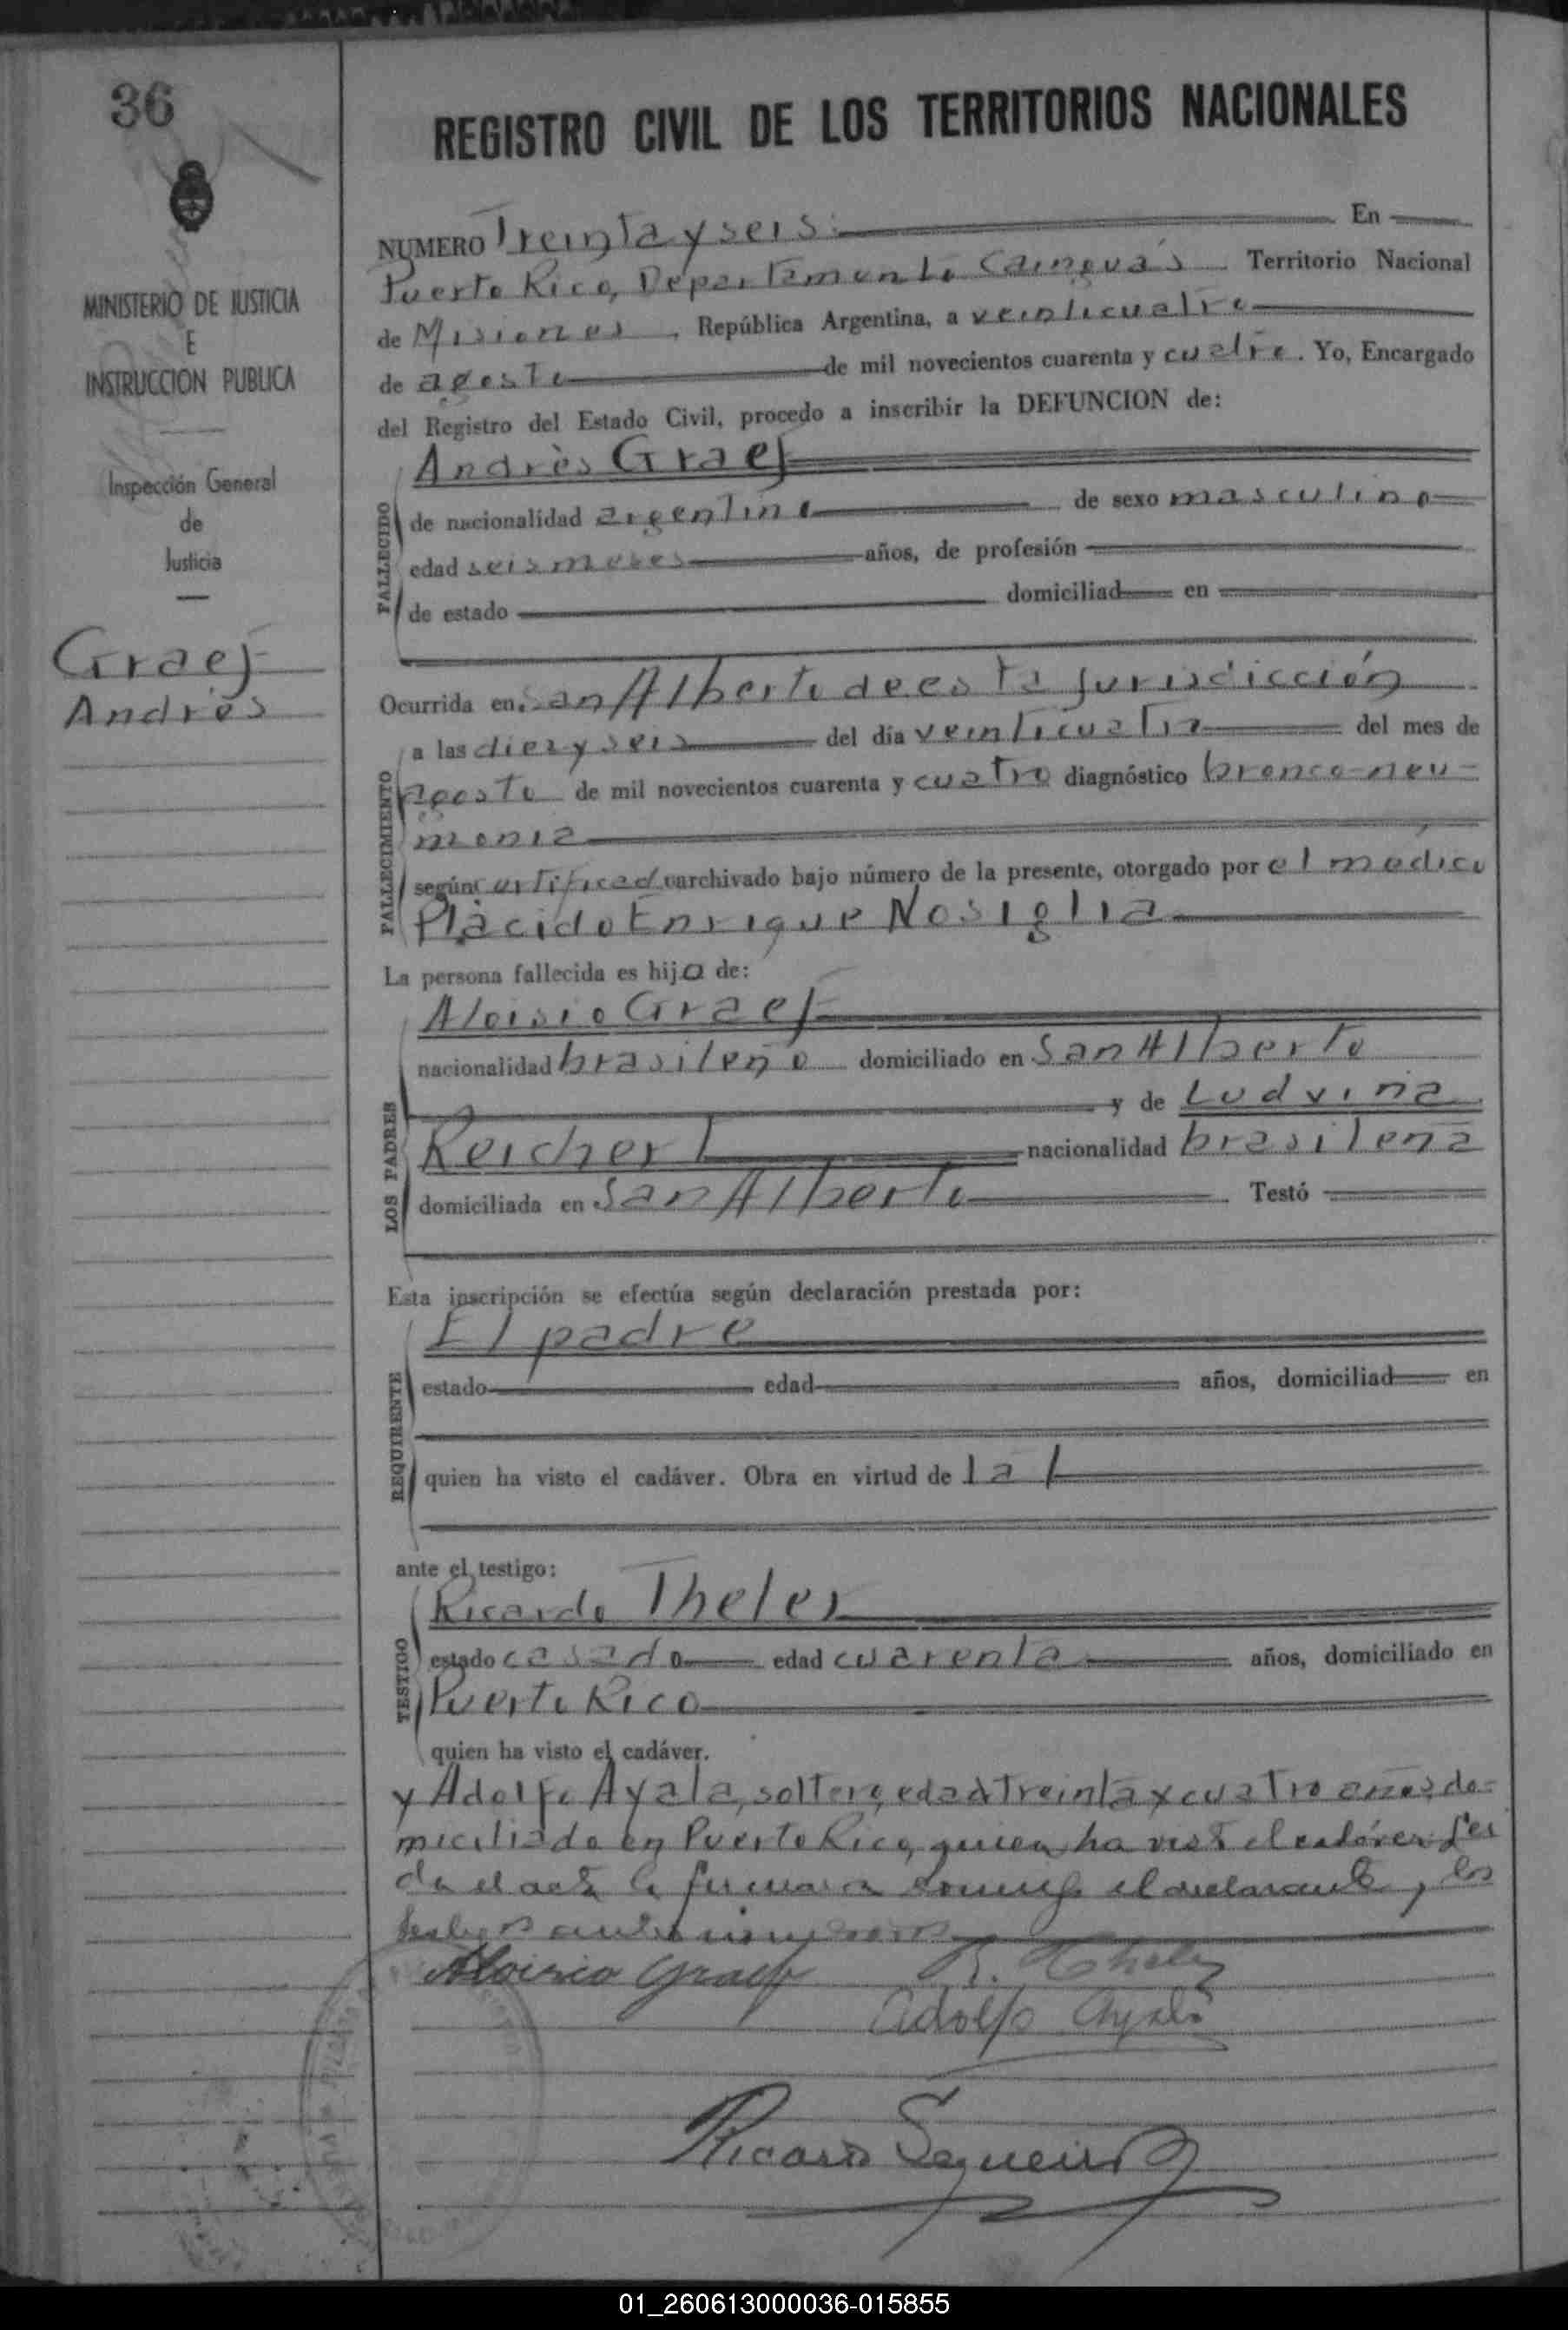 36
MINISTERIO DE JUSTICIA
E
INSTRUCCION PUBLICA
Inspección General
de
Justicia
Graef
Andrés
REGISTRO CIVIL DE LOS TERRITORIOS NACIONALES
NUMERO Treinta y seis. En
Puerto Rico, Departamento Cainguás Territorio Nacional
de Misiones, República Argentina, a veinticuatro
de agosto de mil novecientos cuarenta y cuatro. Yo, Encargado
del Registro del Estado Civil, procedo a inscribir la DEFUNCION de:
FALLECIDO
Andrès Graef
de nacionalidad argentino de sexo masculino
edad seis meses años, de profesión
de estado domiciliad en
Ocurrida en San Alberto de esta jurisdicción
FALLECIMIENTO
a las diez y seis del día veinticuatro del mes de
agosto de mil novecientos cuarenta y cuatro diagnóstico bronco-neu-
monia
según certificado archivado bajo número de la presente, otorgado por el médico
Plácido Enrique Nosiglia
La persona fallecida es hijo de:
LOS PADRES
Aloisio Graef
nacionalidad brasileño domiciliado en San Alberto
y de Ludvina
Reichert nacionalidad brasileña
domiciliada en San Alberto Testó
Esta inscripción se efectúa según declaración prestada por:
REQUIRENTE
El padre
estado edad años, domiciliad en
quien ha visto el cadáver. Obra en virtud de tal
ante el testigo:
TESTIGO
Ricardo Theler
estado casado edad cuarenta años, domiciliado en
Puerto Rico
quien ha visto el cadáver.
y Adolfo Ayala, soltero, edad treinta y cuatro años, do-
miciliado en Puerto Rico, quien ha visto el cadáver. Leí
da el acta la firmaron conmigo el declarante y los
testigos
Aloisio Graef R. Theler
Adolfo Ayala
Ricardo Sequeira
01_260613000036-015855